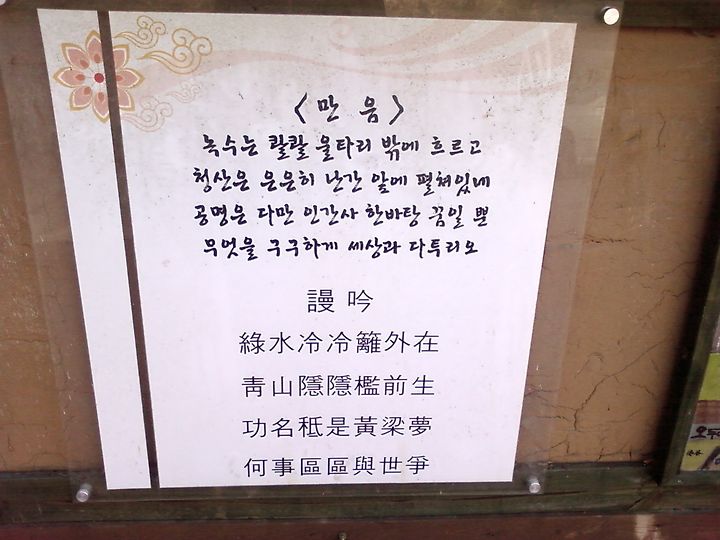 <만 음>
녹수는 콸콸 울타리 밖에 흐르고
청산은 은은히 난간 앞에 펼쳐있네
공명은 다만 인간사 한바탕 꿈일 뿐
무엇을 구구하게 세상과 다투리오
謾 吟
綠水冷冷籬外在
靑山隱隱檻前生
功名秪是黃梁夢
何事區區與世爭